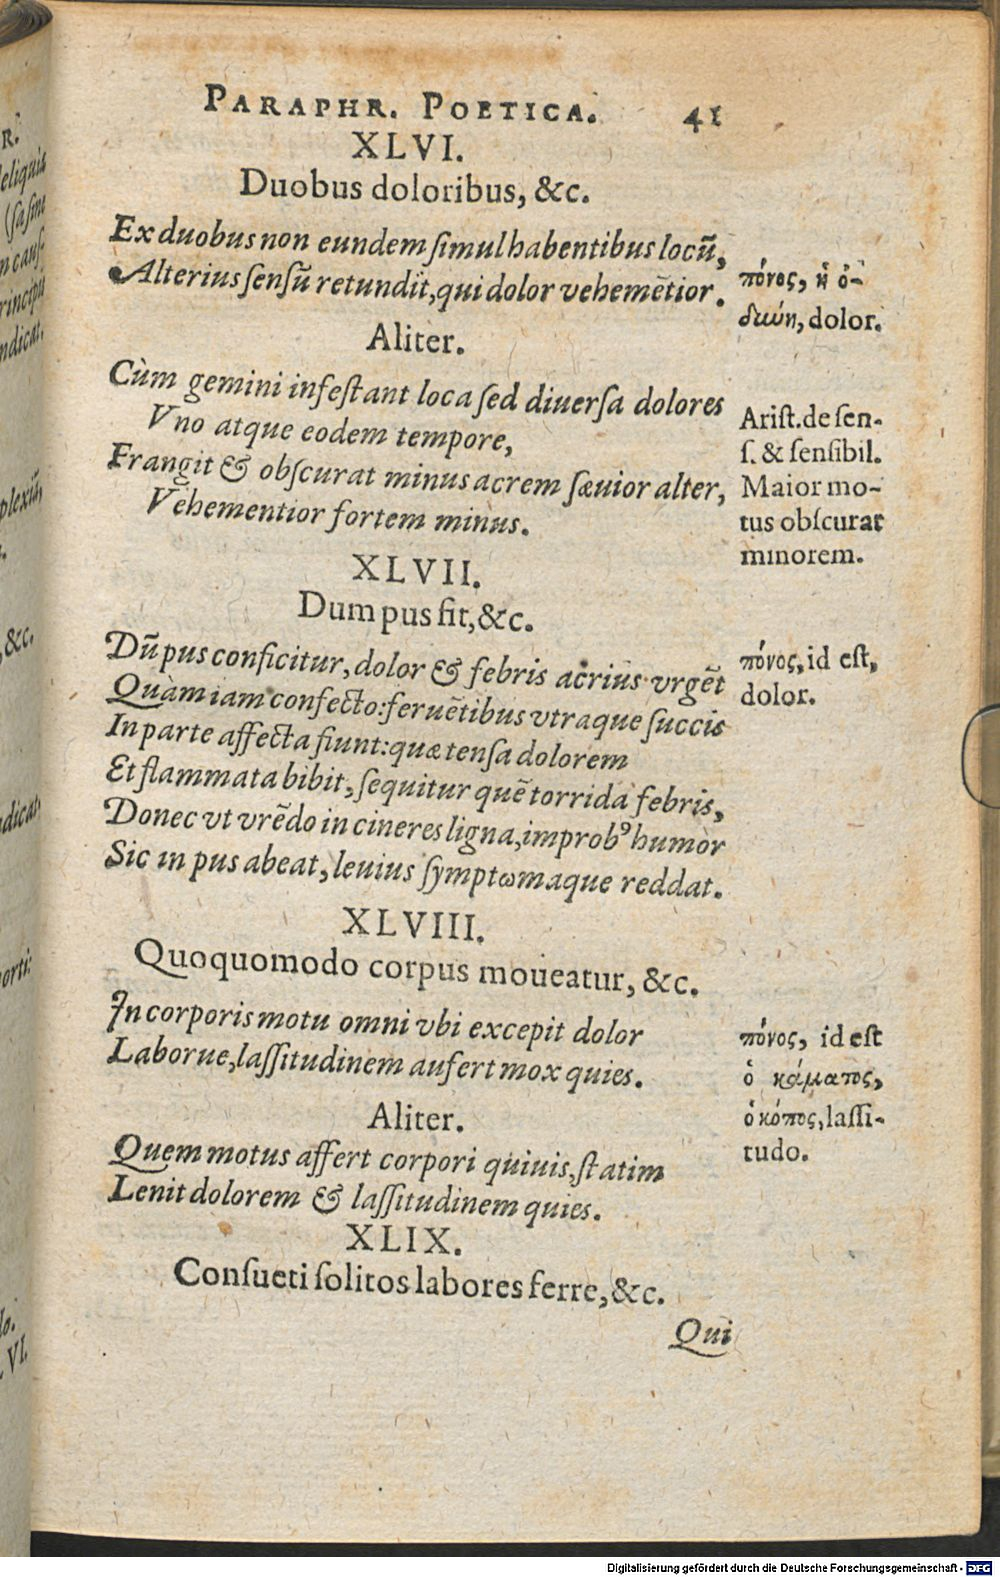 PARAPHR. POETICA. 41
XLVI.
Duobus doloribus, &c.
Ex duobus non eundem ſimul habentibus locū,
Alterius ſensū retundit, qui dolor vehemētior.
πόνος, ἡ ὀ-
δύνη, dolor.
Aliter.
Cùm gemini infeſtant loca ſed diuerſa dolores
Vno atque eodem tempore,
Frangit & obſcurat minus acrem ſæuior alter,
Vehementior fortem minus.
Ariſt. de ſen-
ſ. & ſenſibil.
Maior mo-
tus obſcurat
minorem.
XLVII.
Dum pus fit, &c.
Dū pus conficitur, dolor & febris acrius vrgēt
Quàm iam confecto: feruētibus vtraque ſuccis
In parte affecta fiunt: quæ tenſa dolorem
Et flammata bibit, ſequitur quē torrida febris,
Donec vt vrēdo in cineres ligna, improbꝰ humor
Sic in pus abeat, leuius ſymptωmaque reddat.
πόνος, id eſt,
dolor.
XLVIII.
Quoquomodo corpus moueatur, &c.
In corporis motu omni vbi excepit dolor
Laborue, laſſitudinem aufert mox quies.
πόνος, id eſt
ὁ κάματος,
ὁ κόπος, laſſi-
tudo.
Aliter.
Quem motus affert corpori quiuis, ſtatim
Lenit dolorem & laſſitudinem quies.
XLIX.
Conſueti ſolitos labores ferre, &c.
Qui
R.
eliquis
(ſa ſint
n cauſ:
rincipii
ndicat.
plexū,
, &c.
ndicat,
orti:
lo.
VI.
Digitalisierung gefördert durch die Deutsche Forschungsgemeinschaft - DFG